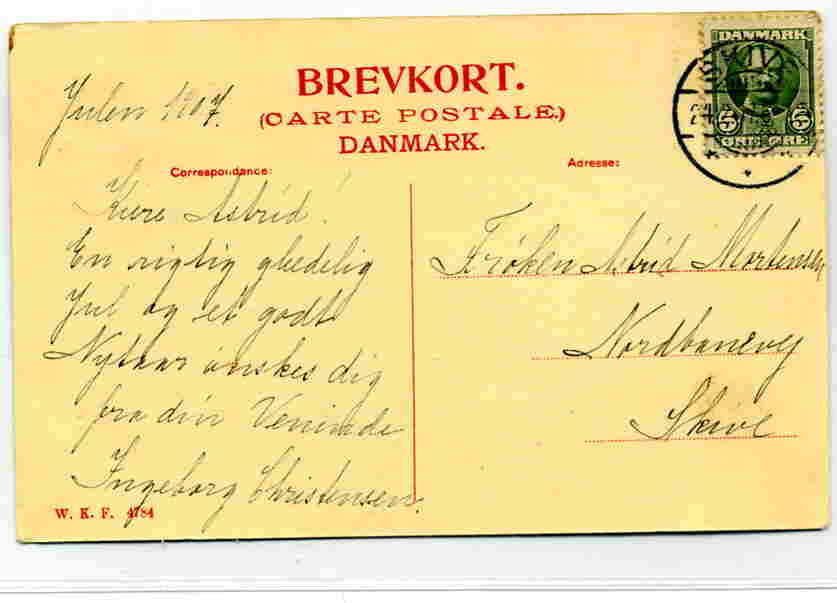 BREVKORT.
(CARTE POSTALE.)
DANMARK.
Correspondance:
Adresse:
Julen 1907.
Kære Astrid!
En rigtig glædelig
Jul og et godt
Nytaar ønskes dig
fra din Veninde
Ingeborg Christensen.
W. K. F. 4784
DANMARK
5 5
ØRE ØRE
Frøken Astrid Mortensen
Nordbanevej
Skive